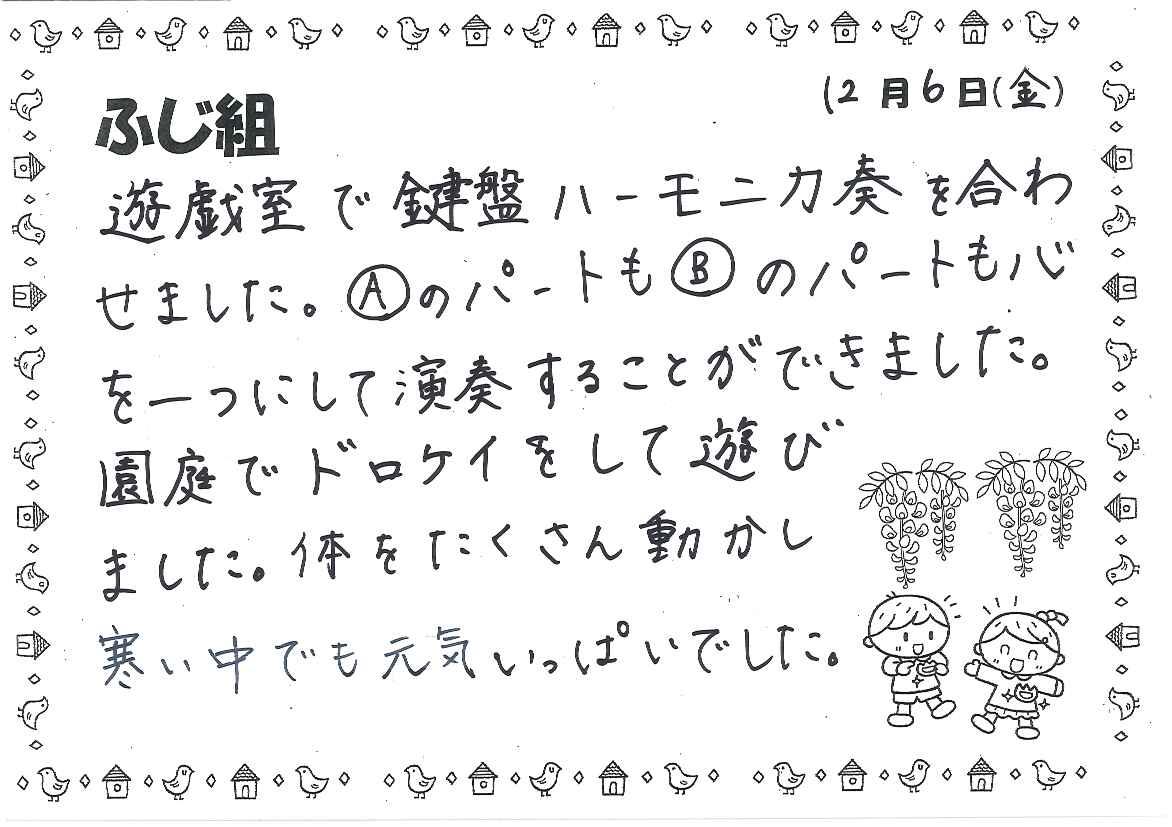 12月6日(金)
ふじ組
遊戯室で鍵盤ハーモニカ奏を合わ
せました。Ⓐのパートも Ⓑのパートも心
を一つにして演奏することができました。
園庭でドロケイをして遊び
ました。体をたくさん動かし
寒い中でも元気いっぱいでした。